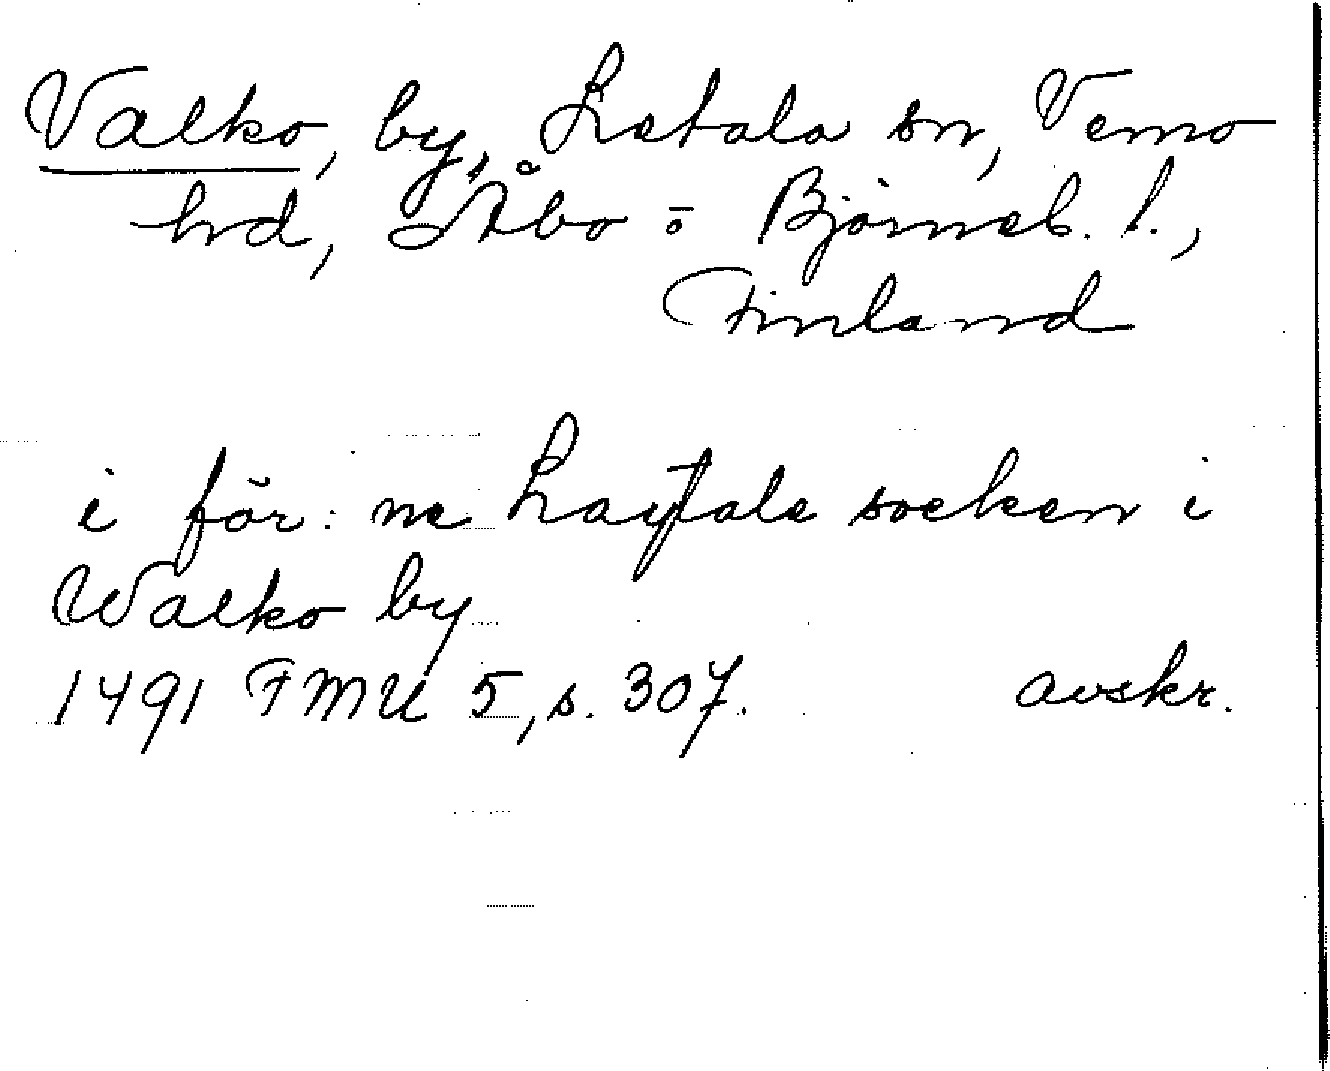 Valko, by, Letala sn, Vemo
hrd, Åbo o Björneb. l.,
Finland
i för: ne Laytala socken i
Walko by
1491 FMU 5, s. 307. avskr.